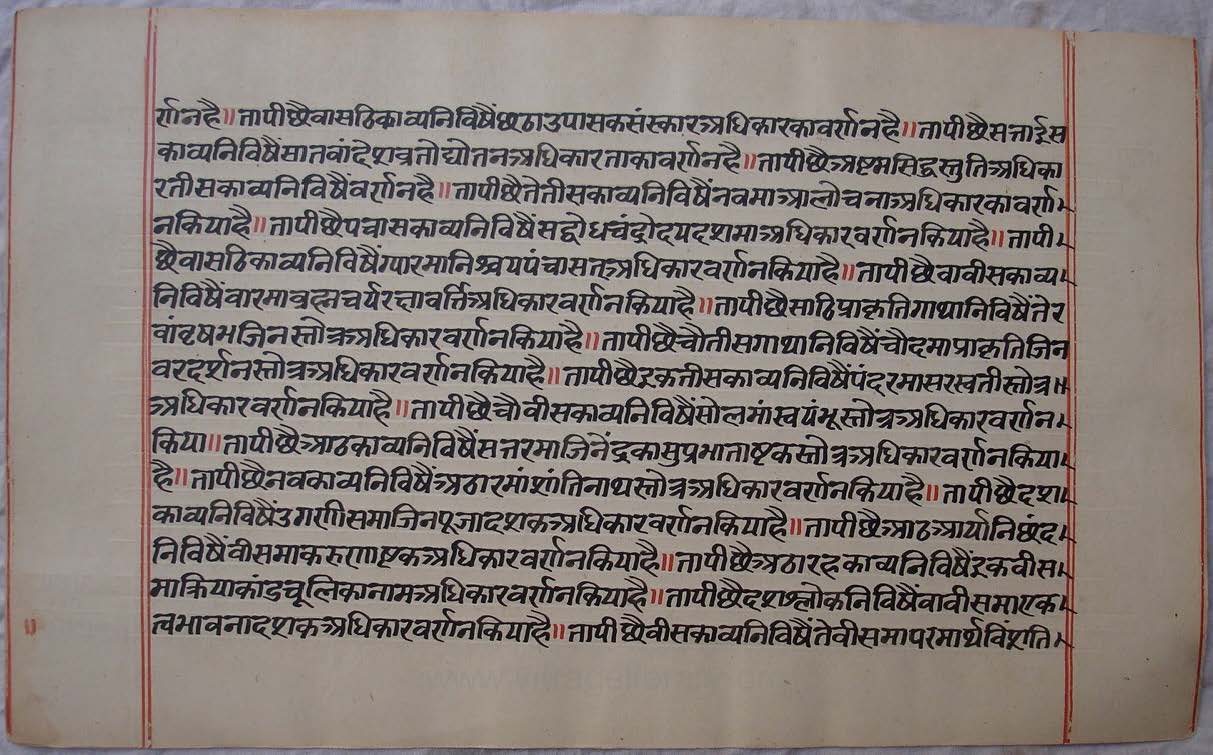 र्णनहै॥तापीछैवासठिकाव्यनिविषैंछठाउपासकसंस्कारअधिकारकावर्णनहै॥तापीछैसत्ताईस
काव्यनिविषैंसातवांदेशव्रतोद्योतनअधिकारताकावर्णनहै॥तापीछैअष्टमसिद्धस्तुतिअधिका
रतीसकाव्यनिविषैंवर्णनहै॥तापीछैतेतीसकाव्यनिविषैंनवमाआलोचनाअधिकारकावर्ण
नकियाहै॥तापीछैपचासकाव्यनिविषैंसद्बोधचंद्रोदयदशमाअधिकारवर्णनकियाहै॥तापी
छैवासठिकाव्यनिविषैंग्यारमानिश्चयपंचासतअधिकारवर्णनकियाहै॥तापीछैवावीसकाव्य
निविषैंवारमाव्रह्मचर्यरक्षावर्त्तिअधिकारवर्णनकियाहै॥तापीछैसाठिप्राकृतिगाथानिविषैंतेर
वांवृषभजिनस्तोत्रअधिकारवर्णनकियाहै॥तापीछैचौतीसगाथानिविषैंचौदमाप्राकृतिजिन
वरदर्शनस्तोत्रअधिकारवर्णनकियाहै॥तापीछैइकतीसकाव्यनिविषैंपंदरमासरस्वतीस्तोत्र॥
अधिकारवर्णनकियाहै॥तापीछैचौवीसकाव्यनिविषैंसोलमांस्वयंभूस्तोत्रअधिकारवर्णन
किया॥तापीछैआठकाव्यनिविषैंसत्तरमाजिनेंद्रकासुप्रभाताष्टकस्तोत्रअधिकारवर्णनकिया
है॥तापीछैनवकाव्यनिविषैंअठारमांशांतिनाथस्तोत्रअधिकारवर्णनकियाहै॥तापीछैदश
काव्यनिविषैंउगणीसमाजिनपूजादशकअधिकारवर्णनकियाहै॥तापीछैआठआर्यानिछंद
निविषैंवीसमाकरुणाष्टकअधिकारवर्णनकियाहै॥तापीछैअठारहकाव्यनिविषैंइकवीस
माक्रियाकांडचूलिकानामअधिकारवर्णनकियाहै॥तापीछैदशश्लोकनिविषैंवावीसमाएक
त्वभावनादशकअधिकारवर्णनकियाहै॥तापीछैवीसकाव्यनिविषैंतेवीसमापरमार्थविंशति